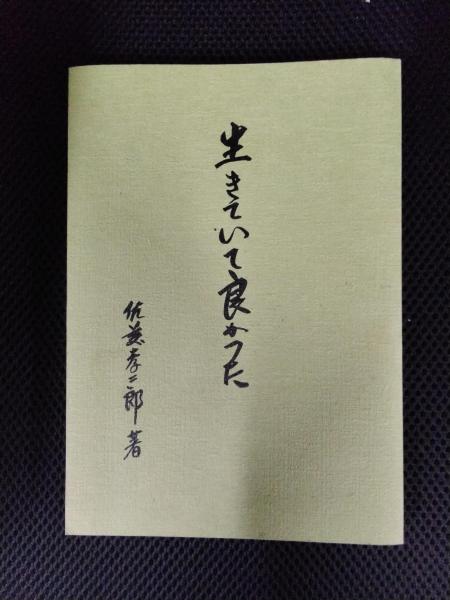 生きていて良かった
佐藤孝二郎 著